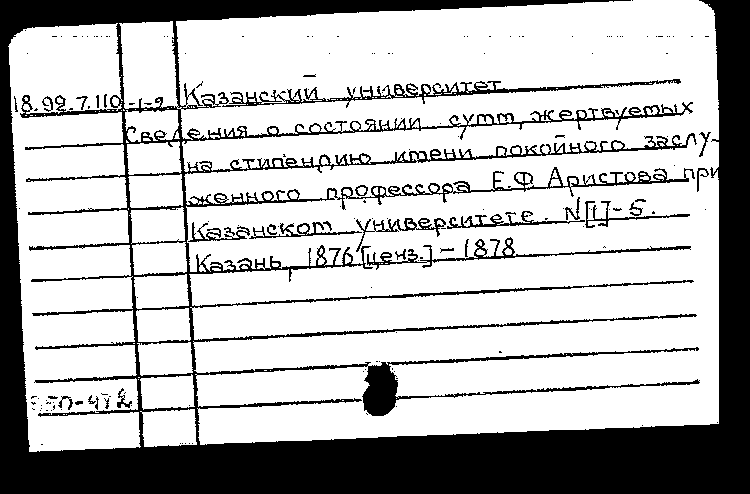 18.92.7.110 -1-2 Казанский университет
Сведения о состоянии сумм, жертвуемых
на стипендию имени покойного заслу-
женного профессора Е.Ф Аристова при
Казанском университете. N[1]-5.
Казань, 1876 [ценз.] - 1878